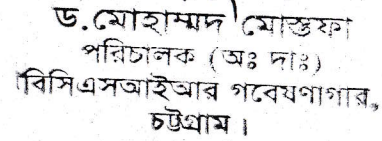 ড.মোহাম্মদ মোস্তফা
পরিচালক (অঃ দাঃ)
বিসিএসআইআর গবেষণাগার,
চট্টগ্রাম।